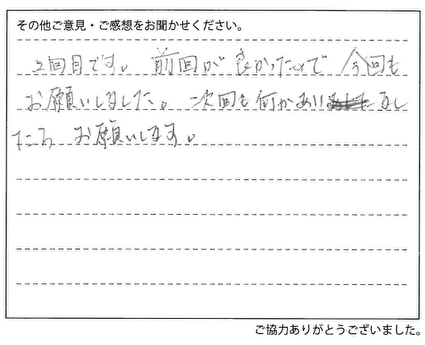 その他ご意見・ご感想をお聞かせください。
2回目です。前回が良かったので今回も
お願いしました。次回も何かありまし
たら お願いします。
ご協力ありがとうございました。